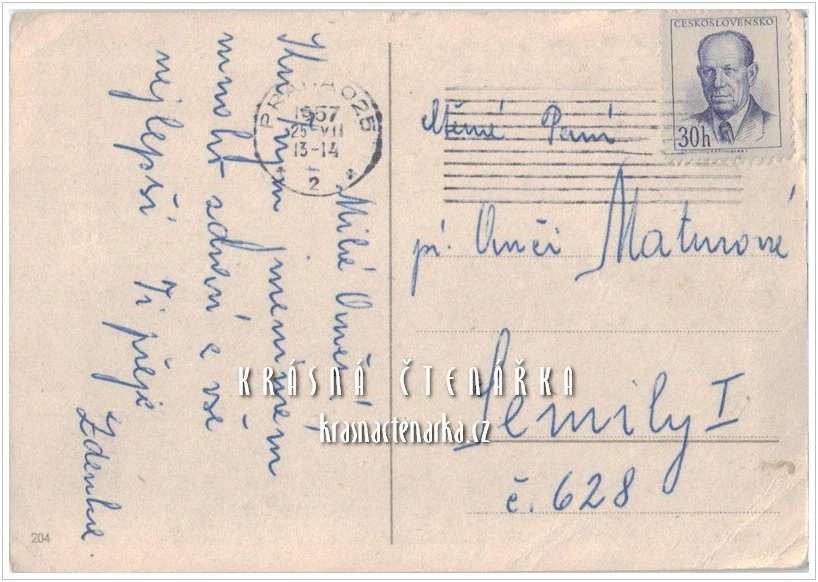 Milá Anči!
Ku Tvým jmeninám
mnoho zdraví a vše
nejlepší Ti přeje
Zdenka.
PRAHA 025
1957
25-VII
13-14
2
ČESKOSLOVENSKO
30h
Ctěná Paní
pí. Anči Maturová
Semily I
č. 628
KRÁSNÁ ČTENÁŘKA
krasnactenarka.cz
204